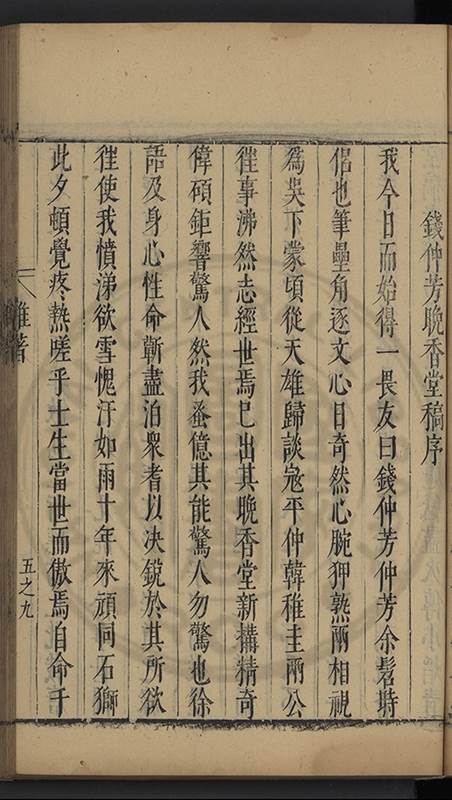 錢仲芳晚香堂稿序
我今日而始得一畏友曰錢仲芳仲芳余髫時
侶也筆壘角逐文心日奇然心腕狎熟兩相視
為吳下蒙頃從天雄歸談寇平仲韓稚圭兩公
徃事沸然志經世焉已出其晚香堂新搆精奇
偉碩鉅響驚人然我蚤億其能驚人勿驚也徐
語及身心性命蘄盡泊衆耆以决鏡於其所欲
徃使我憤涕欲雪愧汗如雨十年來頑同石獅
此夕頓覺疼熱嗟乎士生當世而傲焉自命千
雜著
五之九